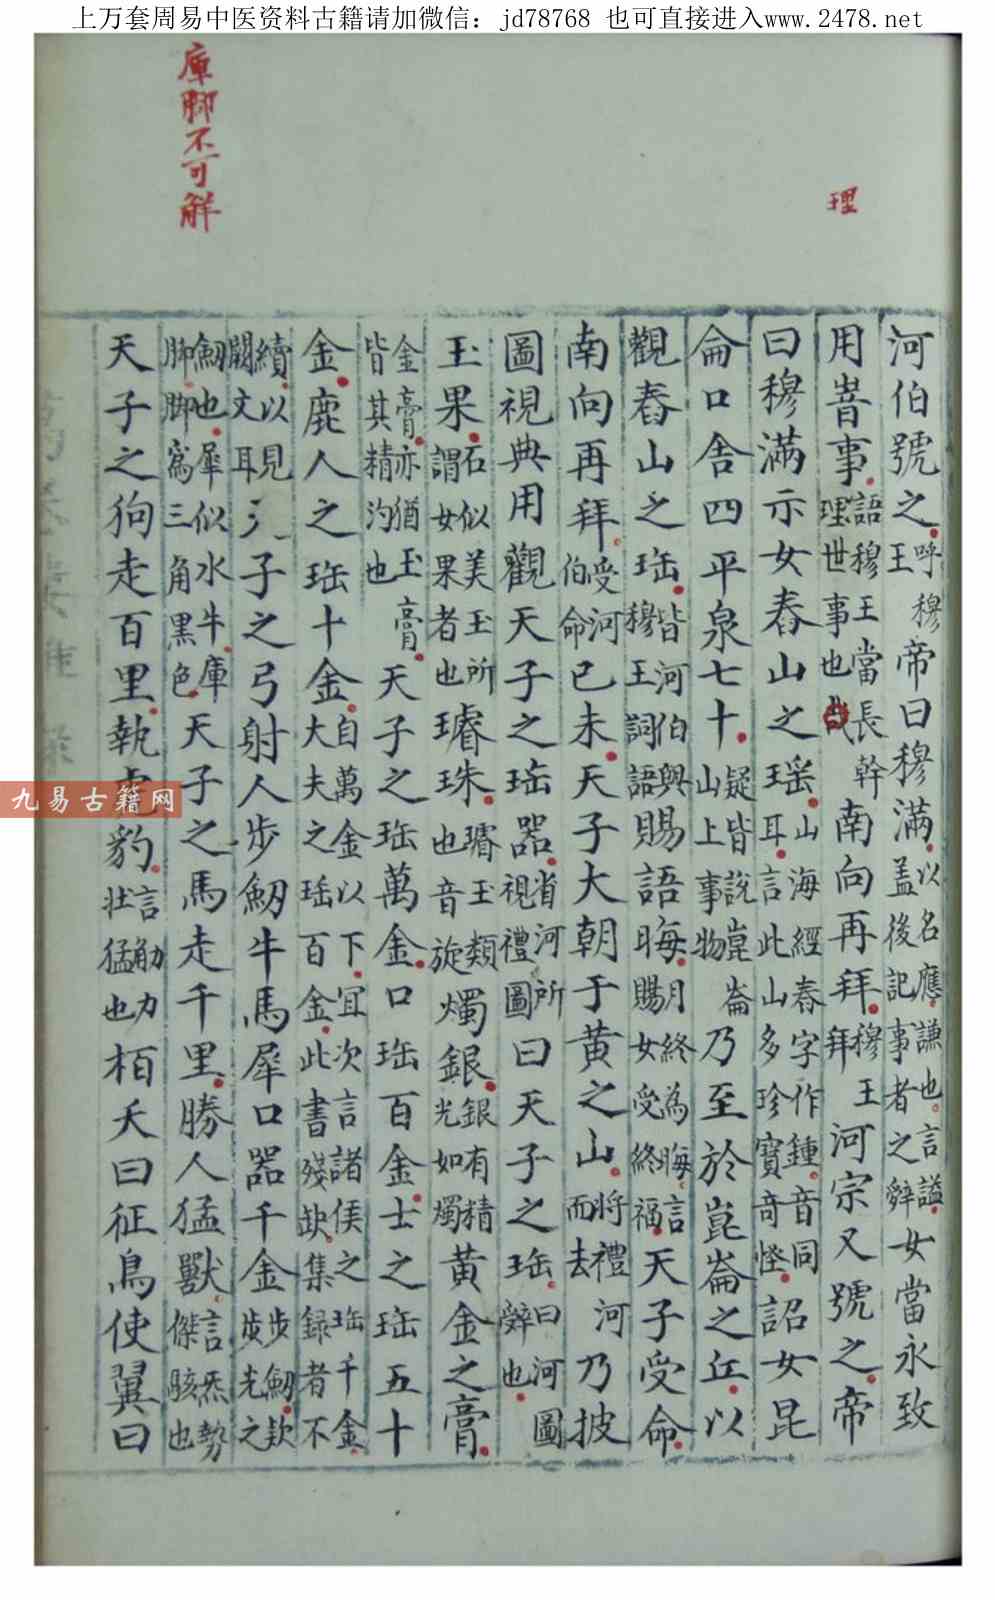 上万套周易中医资料古籍请加微信：jd78768 也可直接进入www.2478.net
理
庳脚不可解
河伯號之呼穆王帝曰穆滿以名應謙也言謚蓋後記事者之辭女當永致
用旹事語穆王當長幹理世事也南向再拜穆王拜河宗又號之帝
曰穆滿示女舂山之瑶山海經舂字作鍾音同耳言此山多珍寶奇怪詔女昆
侖口舍四平泉七十疑皆說崑崙山上事物乃至於崑崙之丘以
觀舂山之珤皆河伯與穆王詞語賜語晦月終為晦言賜女受終福天子受命
南向再拜受河伯命已未天子大朝于黄之山將禮河而去乃披
圖視典用觀天子之珤器省河所視禮圖曰天子之珤曰河圖辭也
玉果石似美玉所謂女果者也璿珠璿玉類也音旋燭銀銀有精光如燭黄金之膏
金膏亦猶玉膏皆其精汋也天子之珤萬金口珤百金士之珤五十
金鹿人之珤十金自萬金以下宜次言諸侯之珤千金大夫之珤百金此書殘缺集録者不
續以見闕文耳子之弓射人步劒牛馬犀口器千金步劒步光之
劒也犀似水牛庳脚脚寫三角黑色天子之馬走千里勝人猛獸言炁勢傑駭也
天子之狗走百里執虎豹言筋力壯猛也栢夭曰征鳥使翼曰
九易古籍网